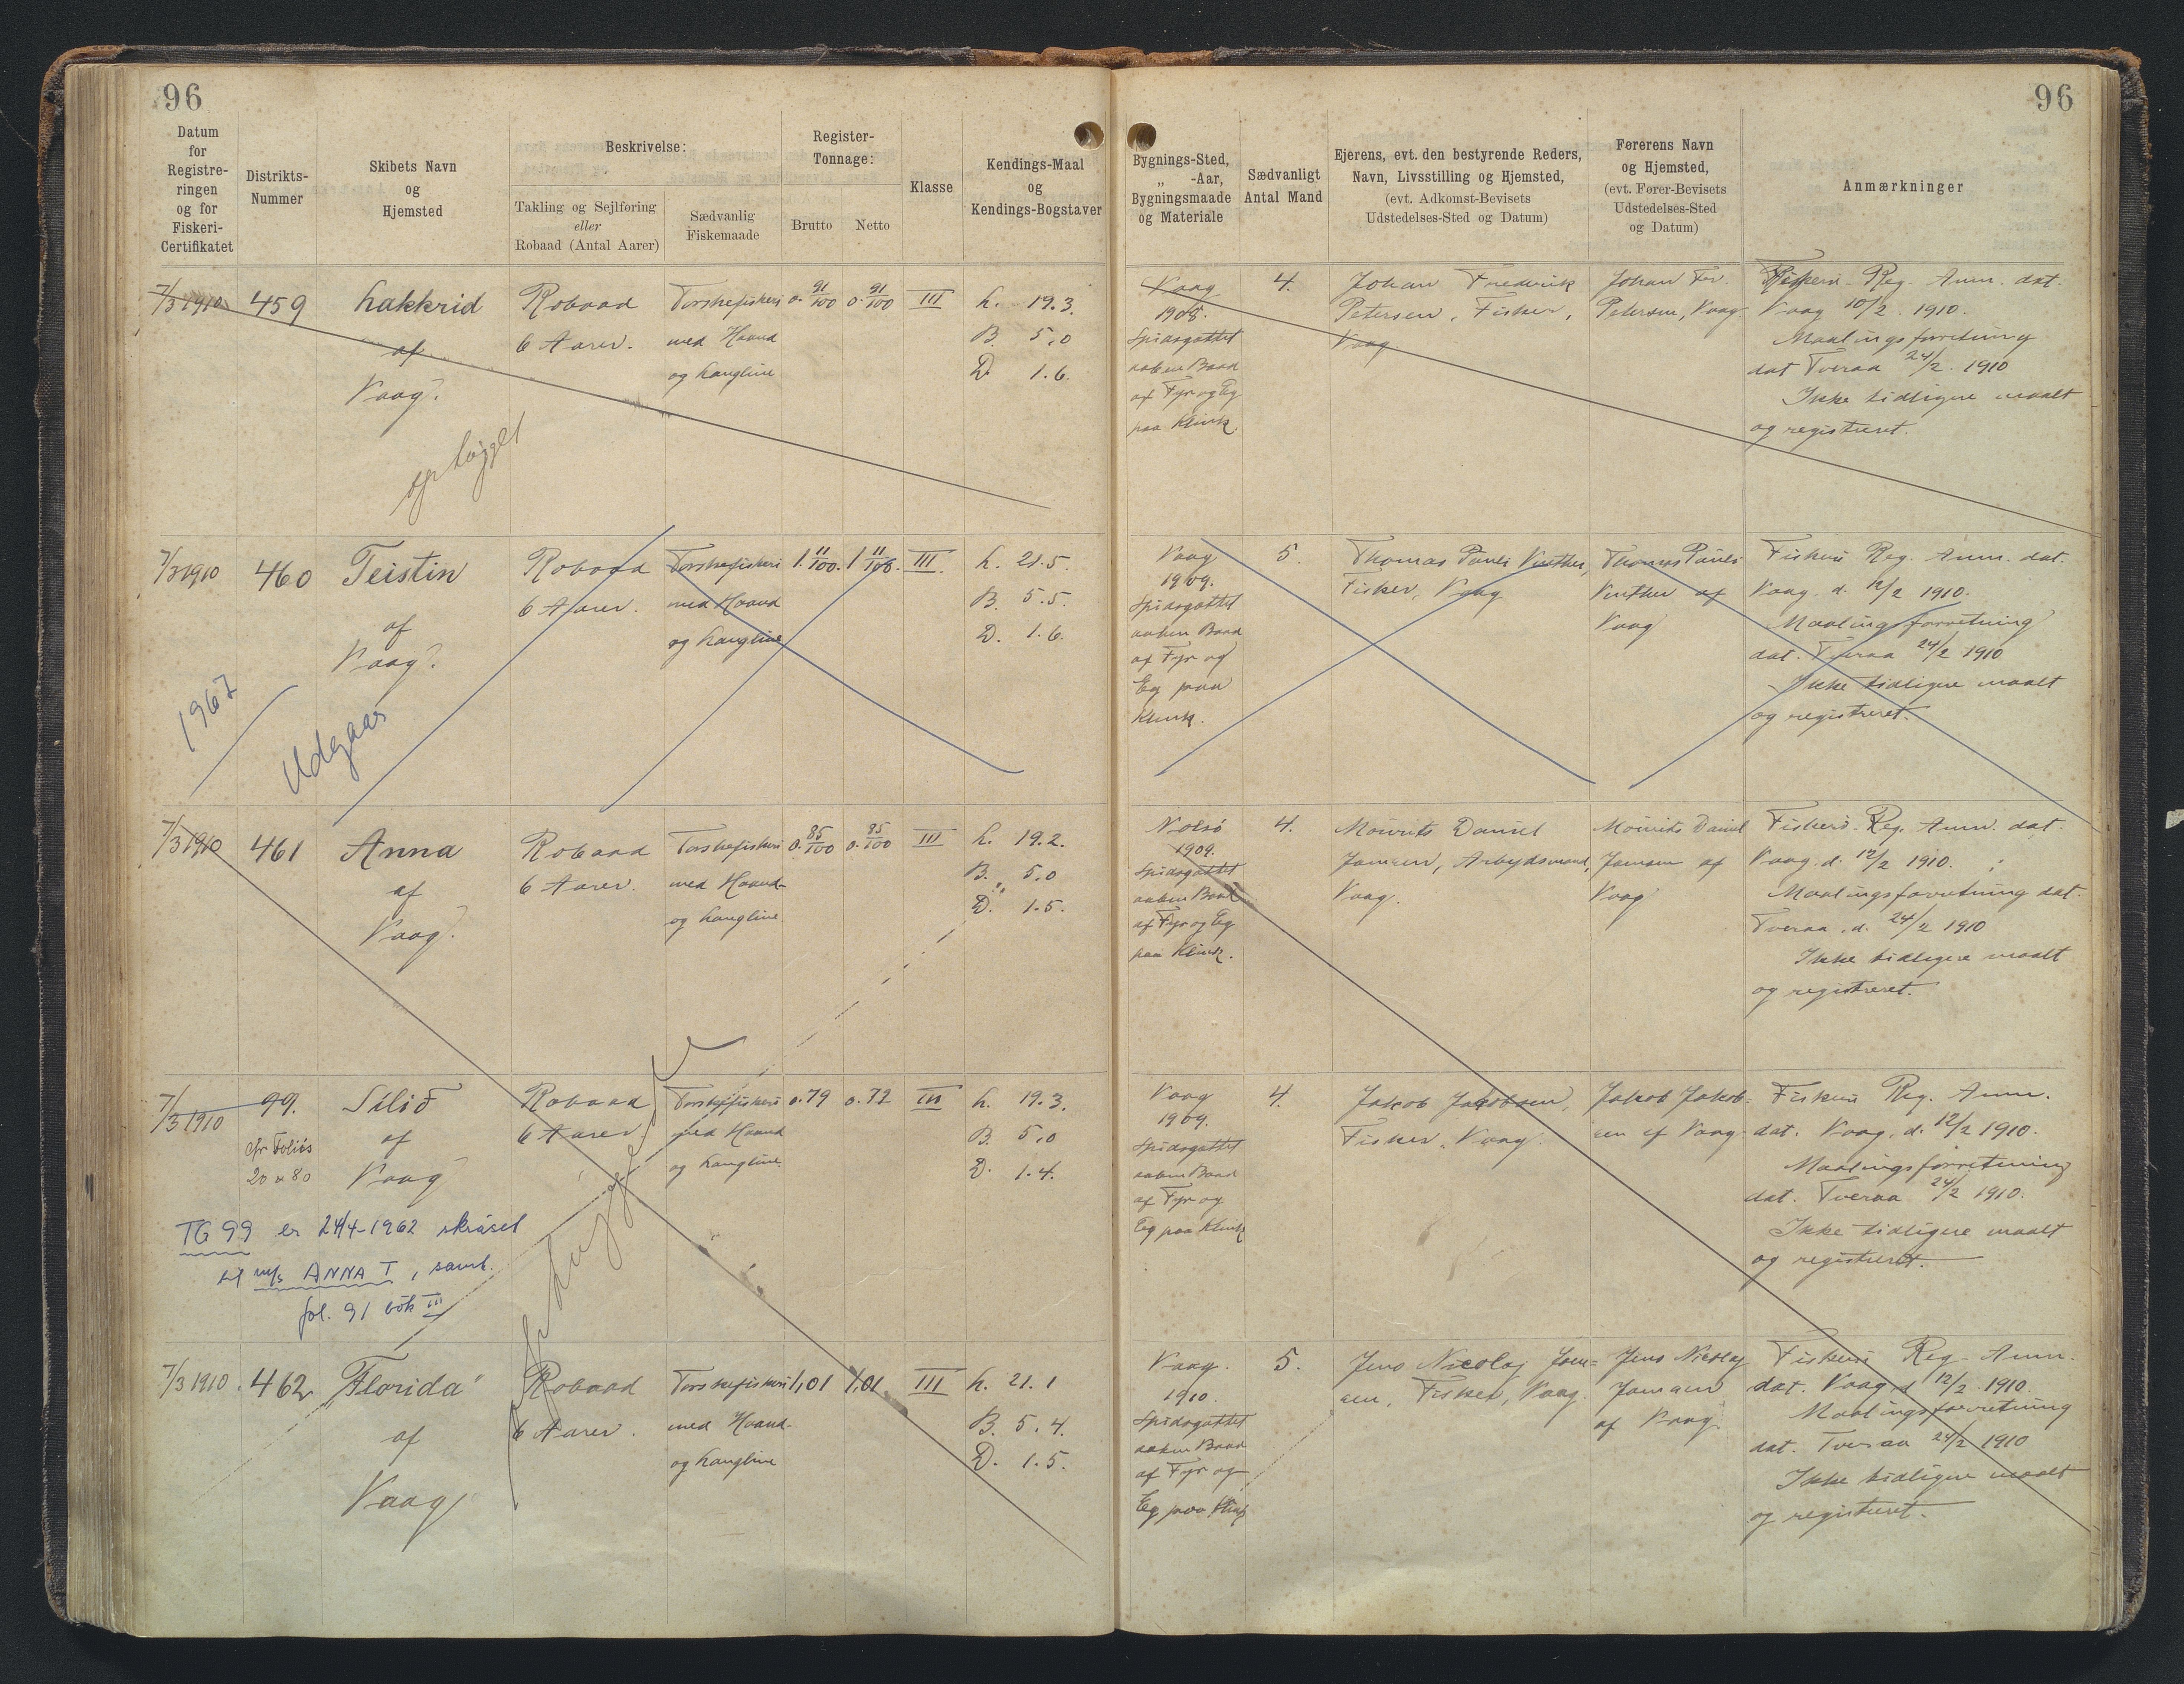 96
Datum
for
Registre-
ringen
og for
Fiskeri-
Certifikatet
Distrikts-
Nummer
Skibets Navn
og
Hjemsted
Beskrivelse:
Takling og Sejlføring
eller
Robaad (Antal Aarer)
Sædvanlig
Fiskemaade
Register-
Tonnage:
Brutto
Netto
Klasse
Kendings-Maal
og
Kendings-Bogstaver
7/3 1910
459
Lakkrid
af
Vaag
ophugget
Robaad
6 Aarer.
Torskefiskeri
med Haand
og Langline
0. 91/100
0. 91/100
III
L. 19.3.
B. 5.0
D. 1.6.
7/3 1910
460
Teistin
af
Vaag
1967
Udgaar
Robaad
6 Aarer.
Torskefiskeri
med Haand
og Langline
1. 11/100.
1 11/100.
III.
L. 21.5.
B. 5.5.
D. 1.6.
7/3 1910
461
Anna
af
Vaag
Robaad
6 Aarer.
Torskefiskeri
med Haand-
og Langline
0. 85/100
0. 85/100
III
L. 19.2.
B. 5.0
D. 1.5.
7/3 1910
99.
cfr Folios
20 & 80
Silið
af
Vaag
Robaad
6 Aarer
Torskefiskeri
med Haand
og Langline.
0.79
0.72
III
L. 19.3.
B. 5.0
D. 1.4.
TG 99 er 24/4-1962 skrásel
til m/s ANNA T, samb.
fol. 91 bók III
ophugget
7/3 1910.
462
"Florida"
af
Vaag
Robaad
6 Aarer.
Torskefiskeri
med Haand-
og Langline
1,01
1.01
III
L. 21.1
B. 5.4.
D. 1.5.
96
Bygnings-Sted,
„ -Aar,
Bygningsmaade
og Materiale
Sædvanligt
Antal Mand
Ejerens, evt. den bestyrende Reders,
Navn, Livsstilling og Hjemsted,
(evt. Adkomst-Bevisets
Udstedelses-Sted og Datum)
Førerens Navn
og Hjemsted,
(evt. Fører-Bevisets
Udstedelses-Sted
og Datum)
Anmærkninger
Vaag
1908.
Spidsgattet
aaben Baad
af Fyr og Eg
paa Klink.
4.
Johan Fredrik
Petersen, Fisker,
Vaag
Johan Fr.
Petersen, Vaag
Fiskeri-Reg. Anm. dat.
Vaag 10/2 1910.
Maalingsforretning
dat Tveraa 24/2 1910
Ikke tidligere maalt
og registreret.
Vaag
1909.
Spidsgattet
aaben Baad
af Fyr og
Eg paa
Klink.
5.
Thomas Pauli Vinther,
Fisker, Vaag
Thomas Pauli
Vinther af
Vaag
Fiskeri Reg. Anm. dat.
Vaag d. 12/2 1910.
Maalingsforretning
dat. Tveraa 24/2 1910
Ikke tidligere maalt
og registreret.
Nolsö
1909.
Spidsgattet
aaben Baad
af Fyr og Eg
paa Klink.
4.
Mourits Daniel
Joensen, Arbejdsmand,
Vaag.
Mourits Daniel
Joensen af
Vaag
Fiskeri-Reg. Anm. dat.
Vaag. d. 12/2 1910.
Maalingsforretning dat.
Tveraa. d. 24/2 1910
Ikke tidligere maalt
og registreret.
Vaag
1909.
Spidsgattet
aaben Baad
af Fyr og
Eg paa Klink
4.
Jakob Jakobsen,
Fisker, Vaag.
Jakob Jakob-
sen af Vaag
Fiskeri Reg. Anm.
dat. Vaag. d. 12/2 1910.
Maalingsforretning
dat. Tveraa 24/2 1910.
Ikke tidligere maalt
og registreret.
Vaag.
1910.
Spidsgattet
aaben Baad
af Fyr og
Eg paa Klink
5.
Jens Nicolaj Joen=
sen, Fisker, Vaag.
Jens Nicolaj
Joensen
af Vaag.
Fiskeri Reg. Anm.
dat. Vaag d 12/2 1910.
Maalingsforretning
dat. Tveraa 24/2 1910
Ikke tidligere maalt
og registreret.